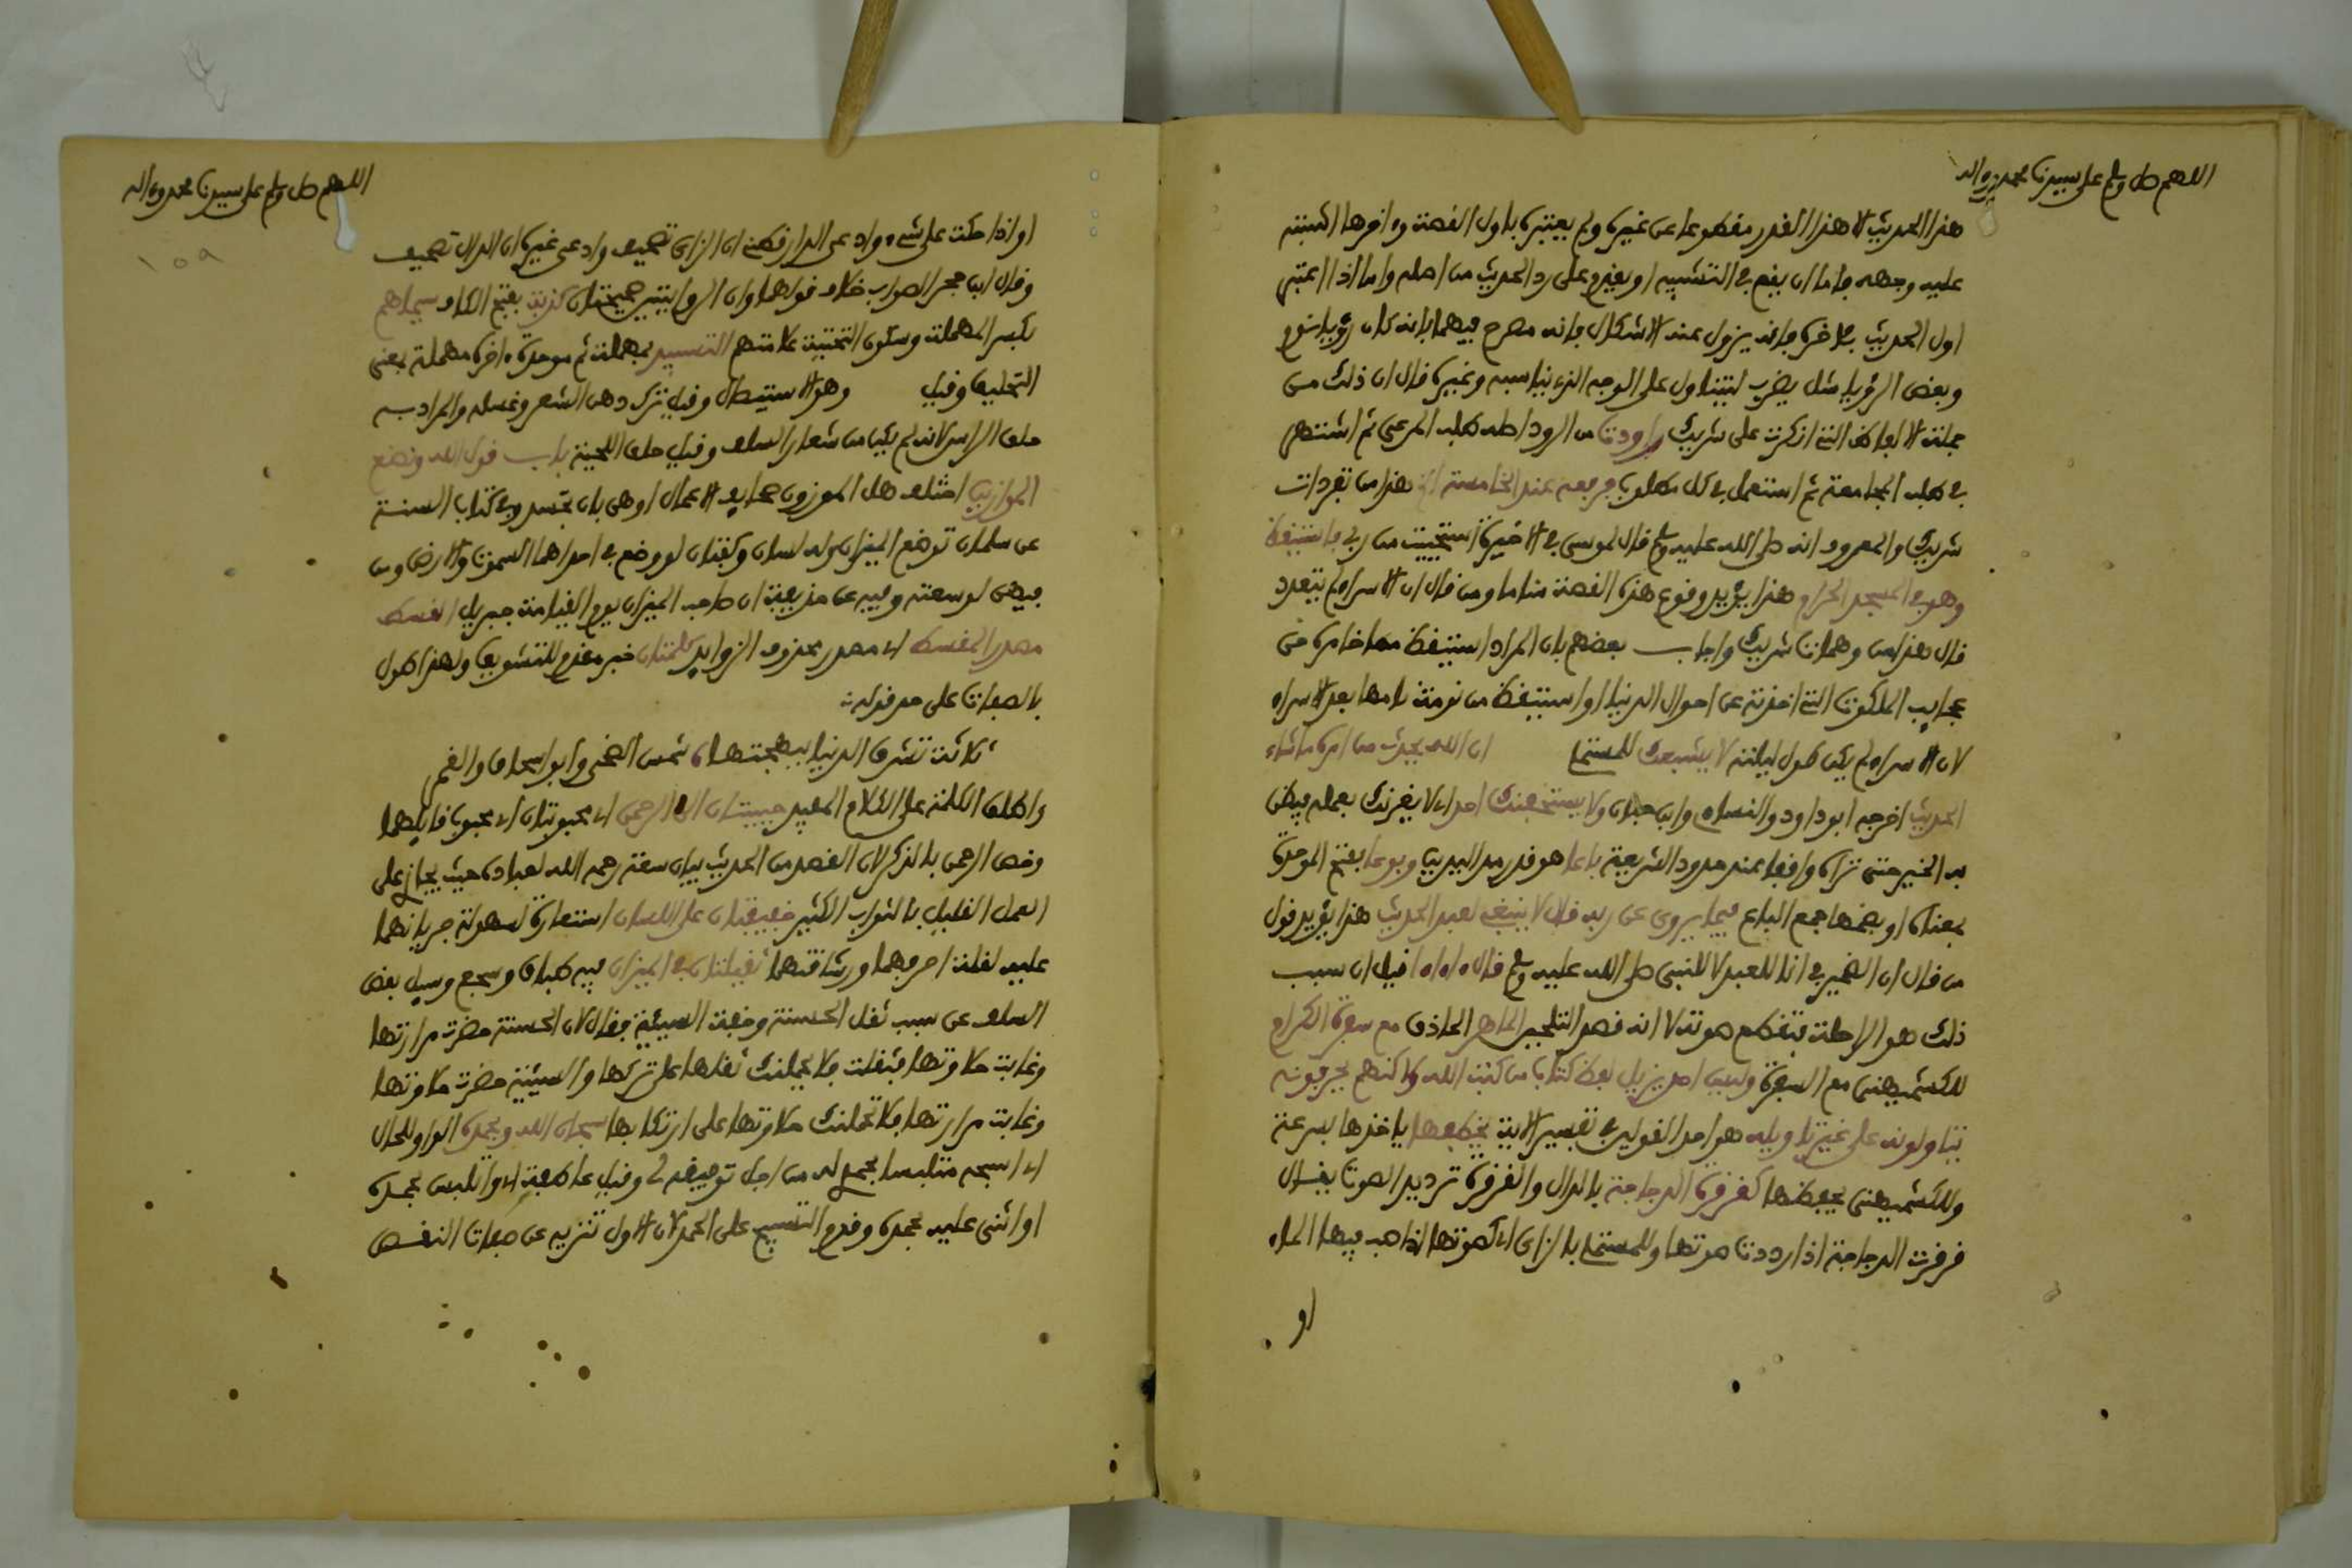 اللهم صل وسلم على سيدنا محمد وءاله
هذا الحديث الا هذا القدر مقطوعا عن غيره ولم يعتبره باول القصة وءاخرها اشتبه
عليه وجهه فاما ان يقع في التشبيه او يقدم على رد الحديث من اصله واما اذا اعتبر
اول الحديث بآخره فانه يزول عنه الاشكال فانه مصرح فيهما بانه كان رؤيا نوم
وبعض الرؤيا مثل يضرب ليتناول على الوجه الذي يناسبه وغيره قال ان ذلك من
جملة الالفاظ التي انكرت على شريك راودت من الرود اصله طلب المرعى ثم اشتهر
في طلب المجامعة ثم استعمل في كل مطلوب فرفعه عند الخامسة الخ هذا من تفردات
شريك والمعروف انه صلى الله عليه وسلم قال لموسى في الاخيرة استحييت من ربي فاستيقظ
وهو في المسجد الحرام هذا يؤيد وقوع هذه القصة مناما ومن قال ان الاسراء لم يتعدد
قال هذا من وهمات شريك واجاب بعضهم بان المراد استيقظ مما خامره من
عجايب الملكوت التي اخذته عن احوال الدنيا او استيقظ من نومة نامها بعد الاسراء
لان الاسراء لم يكن طول ليلته لا يشبعك للمستملى ان الله يحدث من امره ما شاء
الحديث اخرجه ابو داود والنساءى وابن حبان ولا يستخفنك احد اي لا يغرنك بعمله فيظن
به الخير حتى تراه واقفا عند حدود الشريعة باعا هو قدر مد اليدين وبوعا بفتح الموحدة
بمعناه او بضمها جمع الباع فيما يروى عن ربه قال لا ينبغي لعبد الحديث هذا يؤيد قول
من قال ان الضمير في انا للعبد لا للنبي صلى الله عليه وسلم قال ءاءاءا قيل ان سبب
ذلك هو الراحلة بتقطع صوته لا انه قصد التلحين الماهر الحاذق مع سفرة الكرام
للكشميهني مع السفرة وليس احد يزيل لفظ كتاب من كتب الله ولاكنهم يحرفونه
يتاولونه على غير تاويله هو احد القولين في تفسير الاية يخطفها ياخذها بسرعة
وللكشميهني يحفظها كقرقرة الدجاجة بالدال والقرقرة ترديد الصوت يقال
قرقرت الدجاجة اذا رددت صوتها وللمستملى بالزاى اي كصوتها اذا صب فيها الماء
او
اللهم صل وسلم على سيدنا محمد وءاله
١٥٩
او اذا حكت على شيء وادعى الدارقطني ان الزاى تصحيف وادعى غيره ان الدال تصحيف
وقال ابن حجر الصواب خلاف قولهما وان الروايتين صحيحتان كذبت بفتح الكاف سيماهم
بكسر المهملة وسكون التحتية علامتهم التسبيد بمهملة ثم موحدة ءاخره مهملة بمعنى
التحليق وقيل وهو الاستيصال وقيل ترك دهن الشعر وغسله والمراد به
حلق الراس لانه لم يكن من شعار السلف وقيل حلق اللحية باب قول الله ونضع
الموازين اختلف هل الموزون صحايف الاعمال او هي بان تجسد وفي كتاب السنة
عن سلمان توضع الميزان وله لسان وكفتان لو وضع في احداهما السموت والارض ومن
فيهن لوسعته وفيه عن حذيفة ان صاحب الميزان يوم القيامة جبريل القسط
مصدر المقسط اي مصدر محذوف الزوايد كلمتان خبر مقدم للتشويق ولهذا طول
بالصفات على حد قوله
ثلاثة تشرق الدنيا ببهجتها شمس الضحى وابو اسحاق والقمر
واطلق الكلمة على الكلام المفيد حبيبتان الى الرحمن اي محبوبتان اي محبوب قايلهما
وخص الرحمن بالذكر لان القصد من الحديث بيان سعة رحمة الله لعباده حيث يجازى على
العمل القليل بالثواب الكثير خفيفتان على اللسان استعارة لسهولة جريانهما
عليه لقلة احرفهما ورشاقتهما ثقيلتان في الميزان فيه طباق وسجع وسيل بعض
السلف عن سبب ثقل الحسنة وخفة السيئة فقال لان الحسنة حضرت مرارتها
وغابت حلاوتها فثقلت فلا يحملنك ثقلها على تركها والسيئة حضرت حلاوتها
وغابت مرارتها فلا تحملنك حلاوتها على ارتكابها سبحان الله وبحمده الواو للحال
اي اسبحه متلبسا بحمدي له من اجل توفيقه لي وقيل عاطفة اي واتلبس بحمده
او اثنى عليه بحمده وقدم التسبيح على الحمد لان الاول تنزيه عن صفات النقص